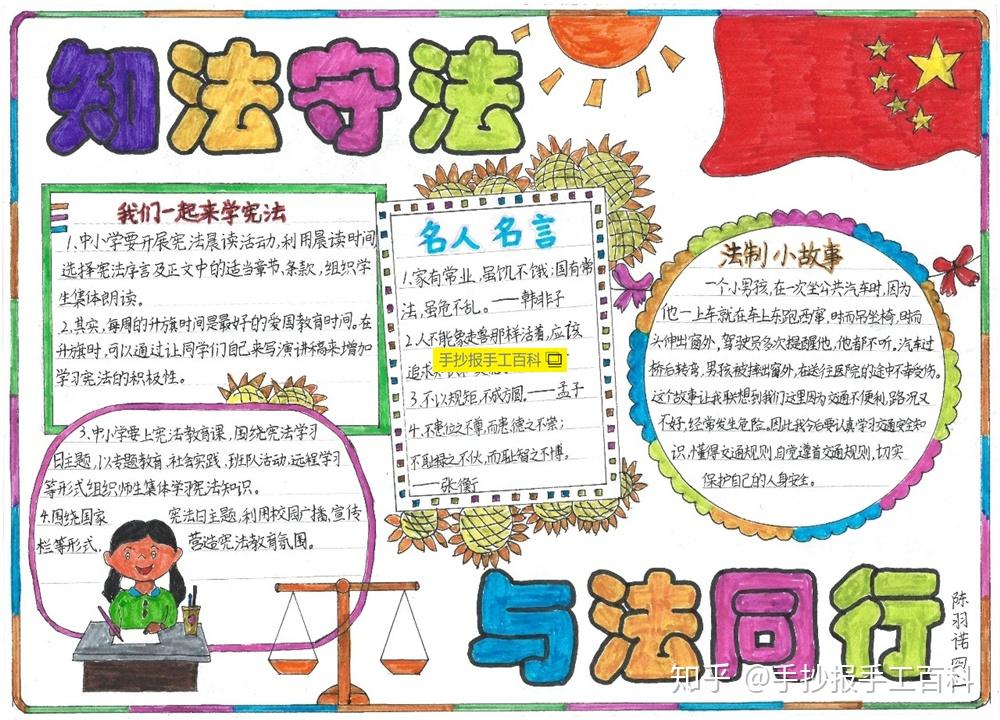 知法守法
我们一起来学宪法
1.中小学要开展宪法晨读活动,利用晨读时间
选择宪法序言及正文中的适当章节、条款,组织学
生集体朗读。
2.其实,每周的升旗时间是最好的爱国教育时间。在
升旗时,可以通过让同学们自己来写演讲稿来增加
学习宪法的积极性。
3.中小学要上宪法教育课,围绕宪法学习
日主题,以专题教育、社会实践、班队活动、远程学习
等形式组织师生集体学习宪法知识。
4.围绕国家 宪法日主题,利用校园广播、宣传
栏等形式, 营造宪法教育氛围。
名人名言
1.家有常业,虽饥不饿;国有常
法,虽危不乱。——韩非子
2.人不能象走兽那样活着,应该
手抄报手工百科
追求
3.不以规矩,不成方圆。——孟子
4.不患位之不尊,而患德之不崇;
不耻禄之不伙,而耻智之不博。
——张衡
法制小故事
一个小男孩,在一次坐公共汽车时,因为
他一上车就在车上东跑西窜,时而吊坐椅,时而
头伸出窗外,驾驶员多次提醒他,他都不听。汽车过
桥后转弯,男孩被摔出窗外,在送往医院的途中不幸受伤。
这个故事让我联想到我们这里因为交通不便利,路况又
不好,经常发生危险。因此我今后要认真学习交通安全知
识,懂得交通规则,自觉遵首交通规则,切实
保护自己的人身安全。
与法同行
陈羽诺 四
知乎 @手抄报手工百科